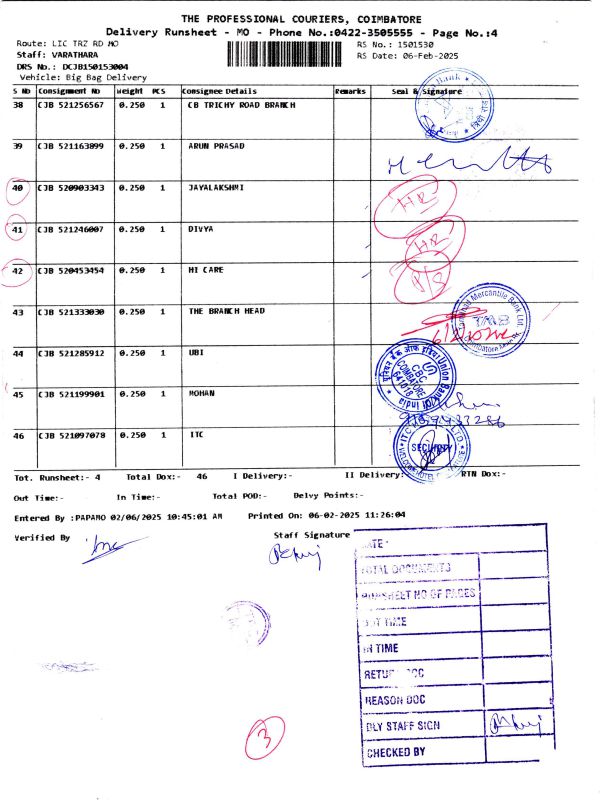 THE PROFESSIONAL COURIERS, COIMBATORE
Delivery Runsheet - MO - Phone No.:0422-3505555 - Page No.:4
Route: LIC TRZ RD MO
RS No.: 1501530
Staff: VARATHARA
RS Date: 06-Feb-2025
DRS No.: DCJB150153004
Vehicle: Big Bag Delivery
S No Consignment No Weight PCS Consignee Details Remarks Seal & Signature
38 CJB 521256567 0.250 1 CB TRICHY ROAD BRANCH
Bank
39 CJB 521163899 0.250 1 ARUN PRASAD
40 CJB 520903343 0.250 1 JAYALAKSHMI HR
41 CJB 521246007 0.250 1 DIVYA HR
42 CJB 520453454 0.250 1 HI CARE P/S
43 CJB 521333030 0.250 1 THE BRANCH HEAD
Mercantile Bank Ltd.
TMB
44 CJB 521285912 0.250 1 UBI
यूनियन बैंक ऑफ इंडिया Union Bank Of India
CBC
COIMBATORE
641018
45 CJB 521199901 1 MOHAN
0.250
46 CJB 521097078 0.250 1 ITC
SECURITY
Tot. Runsheet:- 4 Total Dox:- 46 I Delivery:- II Delivery: RTN Dox:-
Out Time:- In Time:- Total POD:- Delvy Points:-
Entered By :PAPAMO 02/06/2025 10:45:01 AM Printed On: 06-02-2025 11:26:04
Verified By
Staff Signature
DATE
TOTAL DOCUMENTS
RUNSHEET NO OF PAGES
OUT TIME
IN TIME
RETURN DOC
REASON DOC
DLY STAFF SIGN
CHECKED BY
3